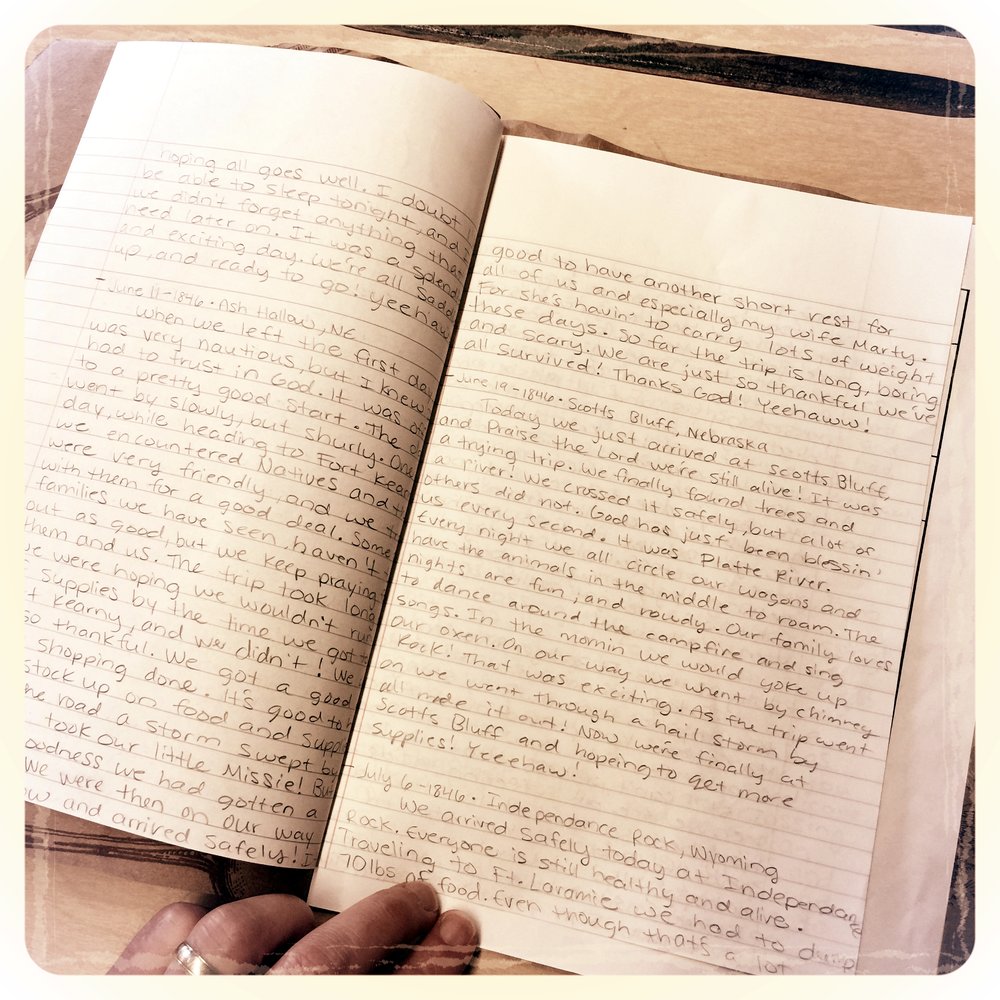 hoping all goes well. I doubt
be able to sleep tonight, and I
we didn't forget anything that
need later on. It was a splend
and exciting day. we're all Sadd
up, and ready to go! Yeehaw
- June 14-1846 · Ash Hallow, NE
When we left the first day
was very nautious, but I knew
had to trust in God. It was of
to a pretty good start. The d
went by slowly, but shurly. One
day, while heading to Fort Kear
we encountered Natives and t
were very friendly, and we t
with them for a good deal. Some
families we have seen haven't
out as good, but we keep praying
them and us. The trip took long
we were hoping we wouldn't run
supplies by the time we got t
t Kearny, and we didn't! We
so thankful. We got a good
shopping done. It's good to h
stock up on food and suppl
he road a storm swept by
took our little Missie! But
oodness we had gotten a
We were then on our way
ow and arrived safely! I
good to have another short rest for
all of us and especially my wife Marty.
For she's havin' to carry lots of weight
these days. So far the trip is long, boring
and scary. We are just so thankful we've
all survived! Thanks God! Yeehaww!
- June 19-1846 · Scotts Bluff, Nebraska
Today we just arrived at scotts Bluff,
and Praise the Lord we're still alive! It was
a trying trip. We finally found trees and
a river! We crossed it safely, but alot of
others did not. God has just been blessin'
us every second. It was Platte River.
Every night we all circle our wagons and
have the animals in the middle to roam. The
nights are fun, and rowdy. Our family loves
to dance around the campfire and sing
songs. In the mornin we would yoke up
our oxen. On our way we whent by chimney
Rock! That was exciting. As the trip went
on we went through a hail storm by
all made it out! Now we're finally at
Scotts Bluff and hoping to get more
supplies! Yeeeehaw!
- July 6-1846 · Independance Rock, Wyoming
We arrived safely today at Independanc
Rock. Everyone is still healthy and alive.
Traveling to Ft. Laramie we had to dump
70lbs of food. Even though thats a lot